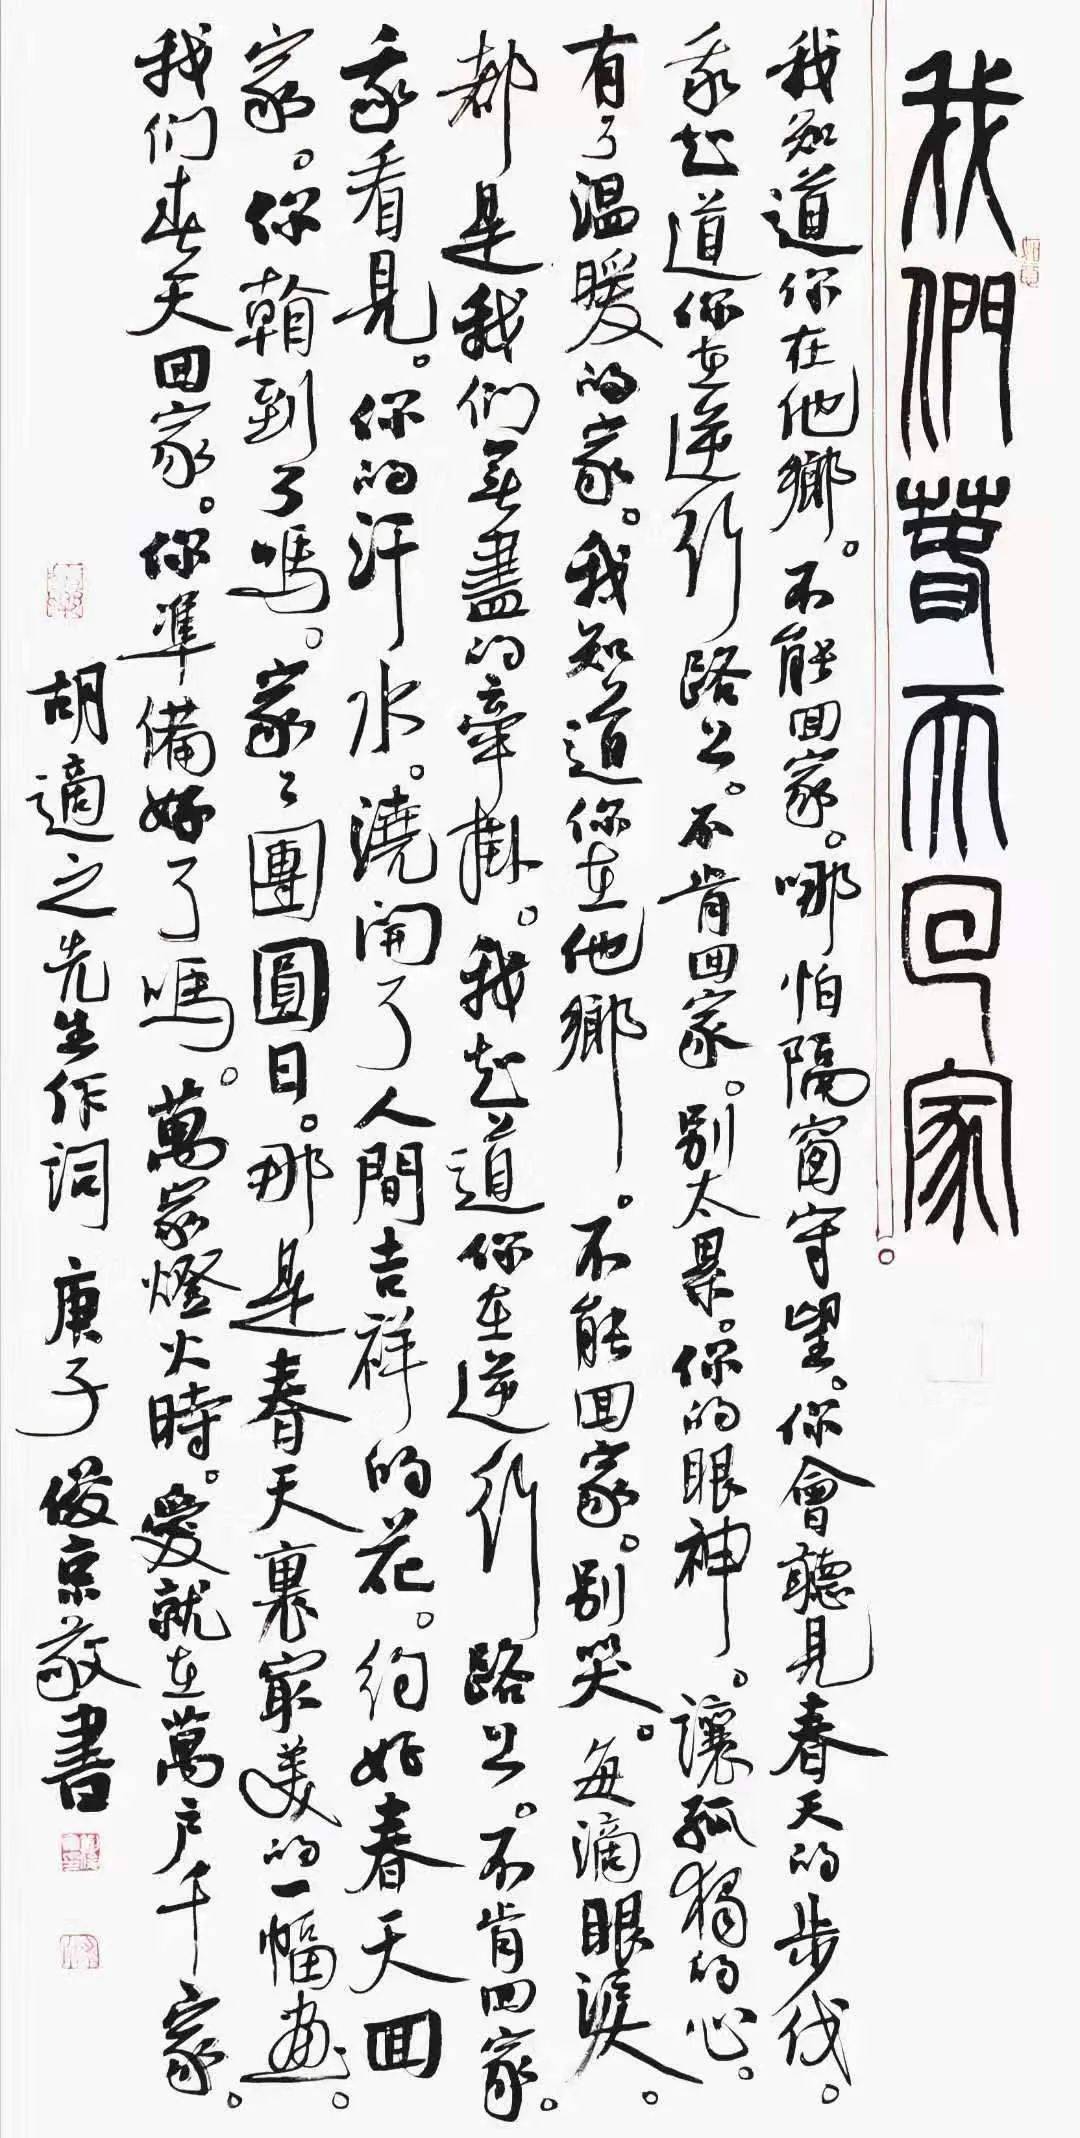 我們春天回家
我知道你在他鄉。不能回家。哪怕隔窗守望。你會聽見春天的步伐。
我知道你在逆行路上。不肯回家。别太累。你的眼神。讓孤獨的心。
有了温暖的家。我知道你在他鄉。不能回家。别哭。每滴眼淚。
都是我们無盡的牽掛。我知道你在逆行路上。不肯回家。
我看見。你的汗水。澆開了人間吉祥的花。约好春天回
家。你鞘到了嗎。家々團圓日。那是春天裏最美的一幅畫。
我们春天回家。你準備好了嗎。萬家燈火時。愛就在萬户千家。
胡適之先生作詞 庚子 俊京敬書